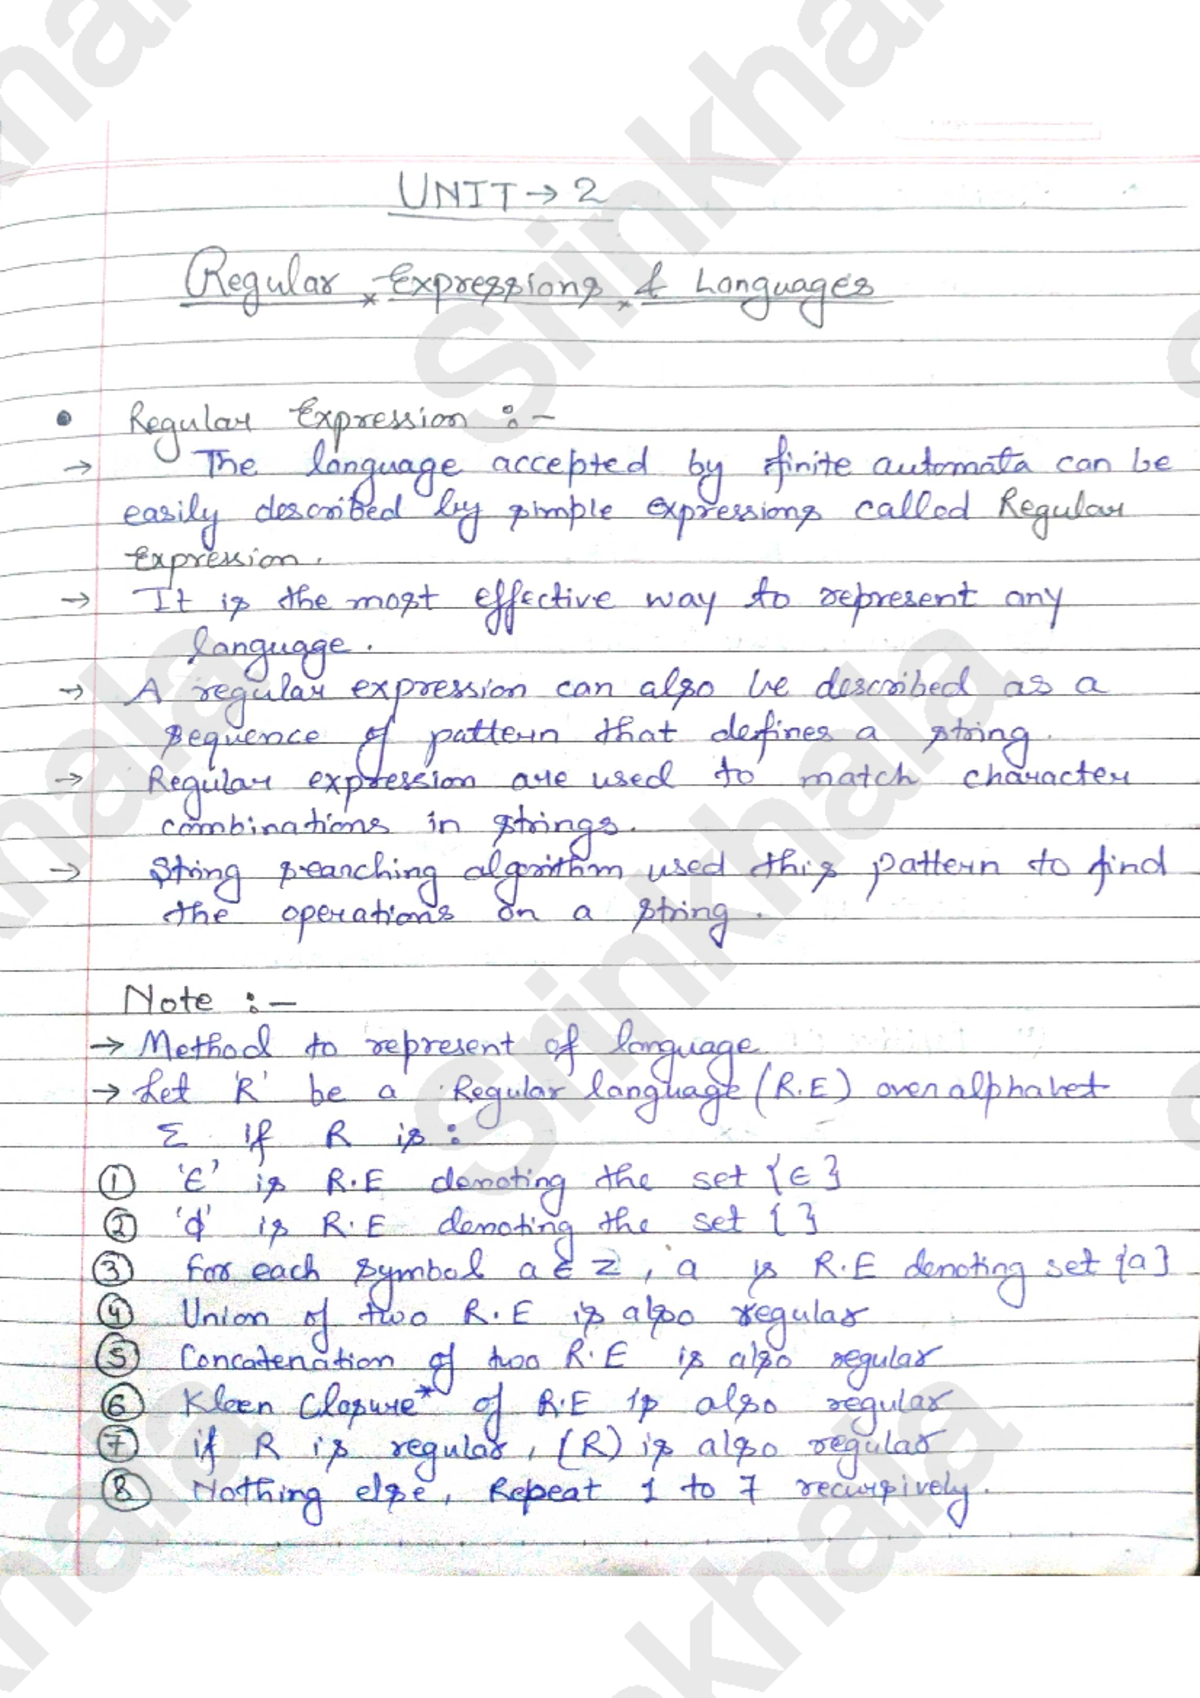 UNIT → 2
Regular Expressions & Languages
• Regular Expression :-
→ The language accepted by finite automata can be
easily described by simple expressions called Regular
Expression.
→ It is the most effective way to represent any
language.
→ A regular expression can also be described as a
sequence of pattern that defines a string.
→ Regular expression are used to match character
combinations in strings.
→ String searching algorithm used this pattern to find
the operations on a string.
Note :-
→ Method to represent of language.
→ Let 'R' be a Regular language (R.E) over alphabet
Σ if R is :
① 'ϵ' is R.E denoting the set {ϵ}
② 'ϕ' is R.E denoting the set { }
③ For each symbol a ϵ Σ, a is R.E denoting set {a}
④ Union of two R.E is also regular
⑤ Concatenation of two R.E is also regular
⑥ Kleen Closure* of R.E is also regular
⑦ if R is regular, (R) is also regular
⑧ Nothing else, Repeat 1 to 7 recursively.
Srinkhala